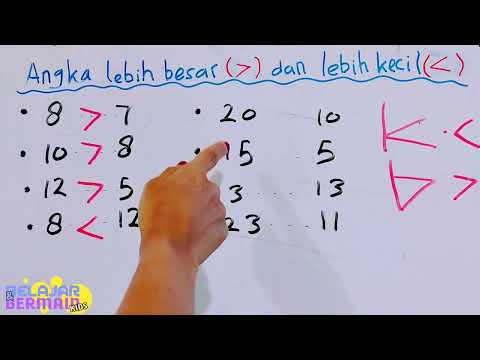 Angka lebih besar (>) dan lebih kecil (<)
• 8 > 7
• 10 > 8
• 12 > 5
• 8 < 12
• 20 10
15 5
3 13
23 11
K <
b >
BELAJAR
BERMAIN
KIDS